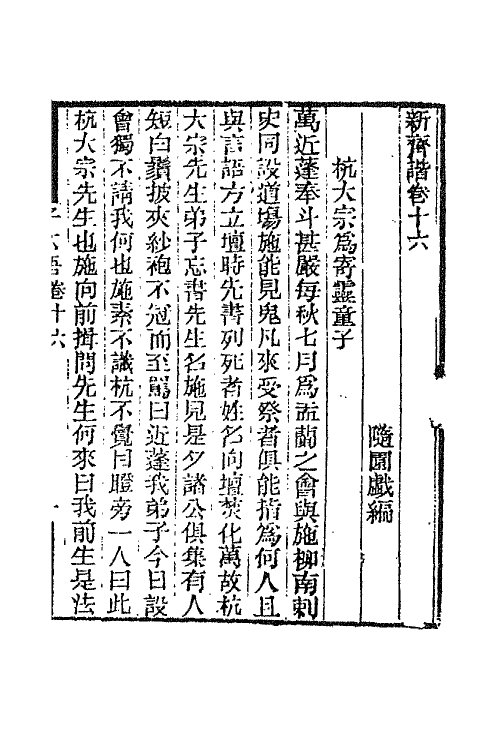 新齊諧卷十六
隨園戲編
杭大宗爲寄靈童子
萬近蓬奉斗甚嚴每秋七月爲盂蘭之會與施柳南刺
史同設道場施能見鬼凡來受祭者俱能指爲何人且
與言語方立壇時先書列死者姓名向壇焚化萬故杭
大宗先生弟子忘書先生名施見是夕諸公俱集有人
短白鬚披夾紗袍不冠而至罵曰近蓬我弟子今日設
會獨不請我何也施素不識杭不覺目瞪旁一人曰此
杭大宗先生也施向前揖問先生何來曰我前生是法
子不語卷十六
一